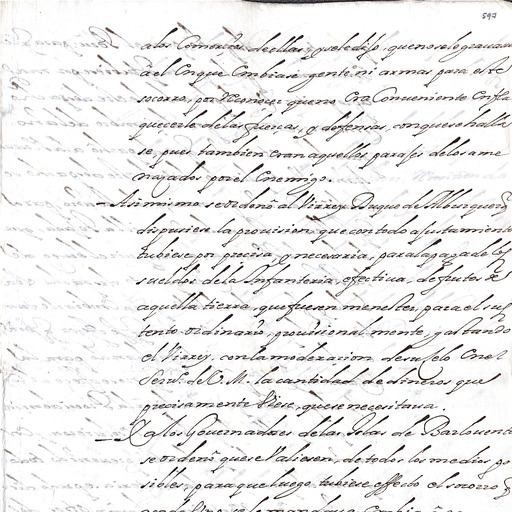 597
a los Comercios de ellas, y se le dijo, que no se lo gravava
a el Conque Embiase gente ni armas para este
socorro, por reconocer que no era Conveniente Enfla
quecerle de las fuerças, y defensas, con que se halla
se, pues tambien eran aquellos parajes de los ame
nazados por el Enemigo.
Asimismo se ordenó al Virrey Duque de Alburquerq
dispusiese la provision, que con todo ajustamiento
tubiese por precisa, y necesaria, para la paga de los
sueldos de la Infanteria, efectiva, de frutos de
aquella tierra, que fuesen menester, para el sus
tento ordinario, provisional mente, gastando
el Virrey, con la moderazion de su celo En el
Serv.º de V. M. la cantidad de dineros que
precisamente Viese, que se necesitava.
Y a los Governadores de las Islas de Barlovento
se ordenó que se Valiesen, de todos los medios po
sibles, para que luego tubiese effecto el socorro